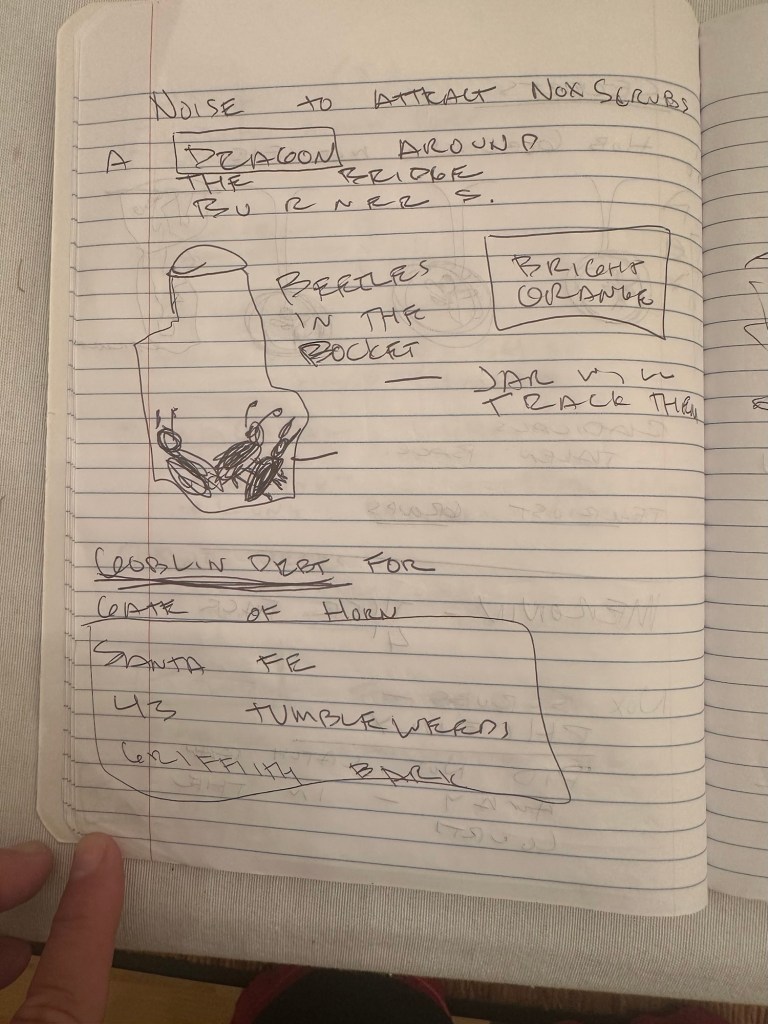 NOISE TO ATTRACT NOX SCRUBS
A DRAGON AROUND
THE BRIDGE
BURNERS.
BEETLES
IN THE
BOCKET
BRIGHT
ORANGE
— JAR WILL
TRACK THEM
GOBLIN DEBT FOR
GATE OF HORN
SANTA FE
43 TUMBLEWEEDS
GRIFFITH BARK